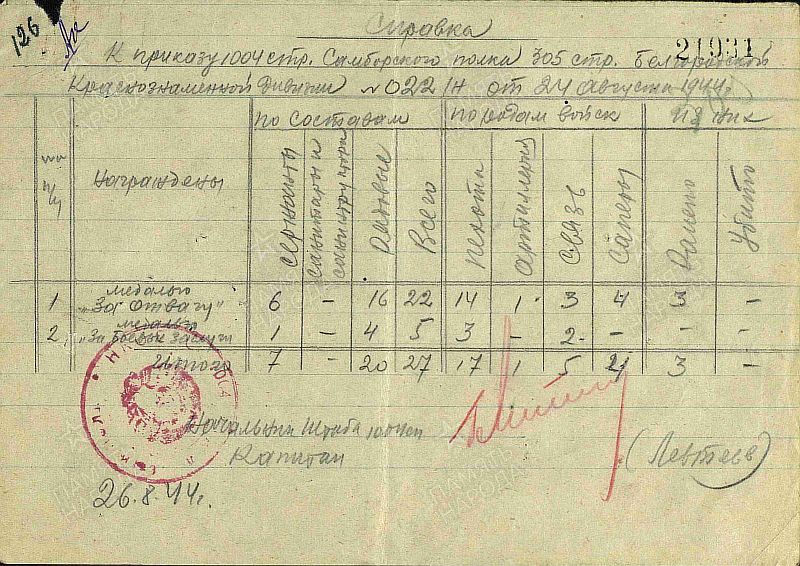 126
Справка
21931
К приказу 1004 стр. Самборского полка 305 стр. Белгородской
Краснознаменной дивизии № 022/н от 24 августа 1944г.
по составам по родам войск из них
№№ п/п Награждены сержанты санитары и санинструктора рядовые Всего пехота артиллерия связь саперы Ранено Убито
1 медалью „За отвагу" 6 – 16 22 14 1 3 4 3 –
2 медалью „За боевые заслуги 1 – 4 5 3 – 2 – – –
Итого 7 – 20 27 17 1 5 4 3 –
Начальник штаба
Капитан
(Левтеев)
26.8.44г.
ПАМЯТЬ НАРОДА